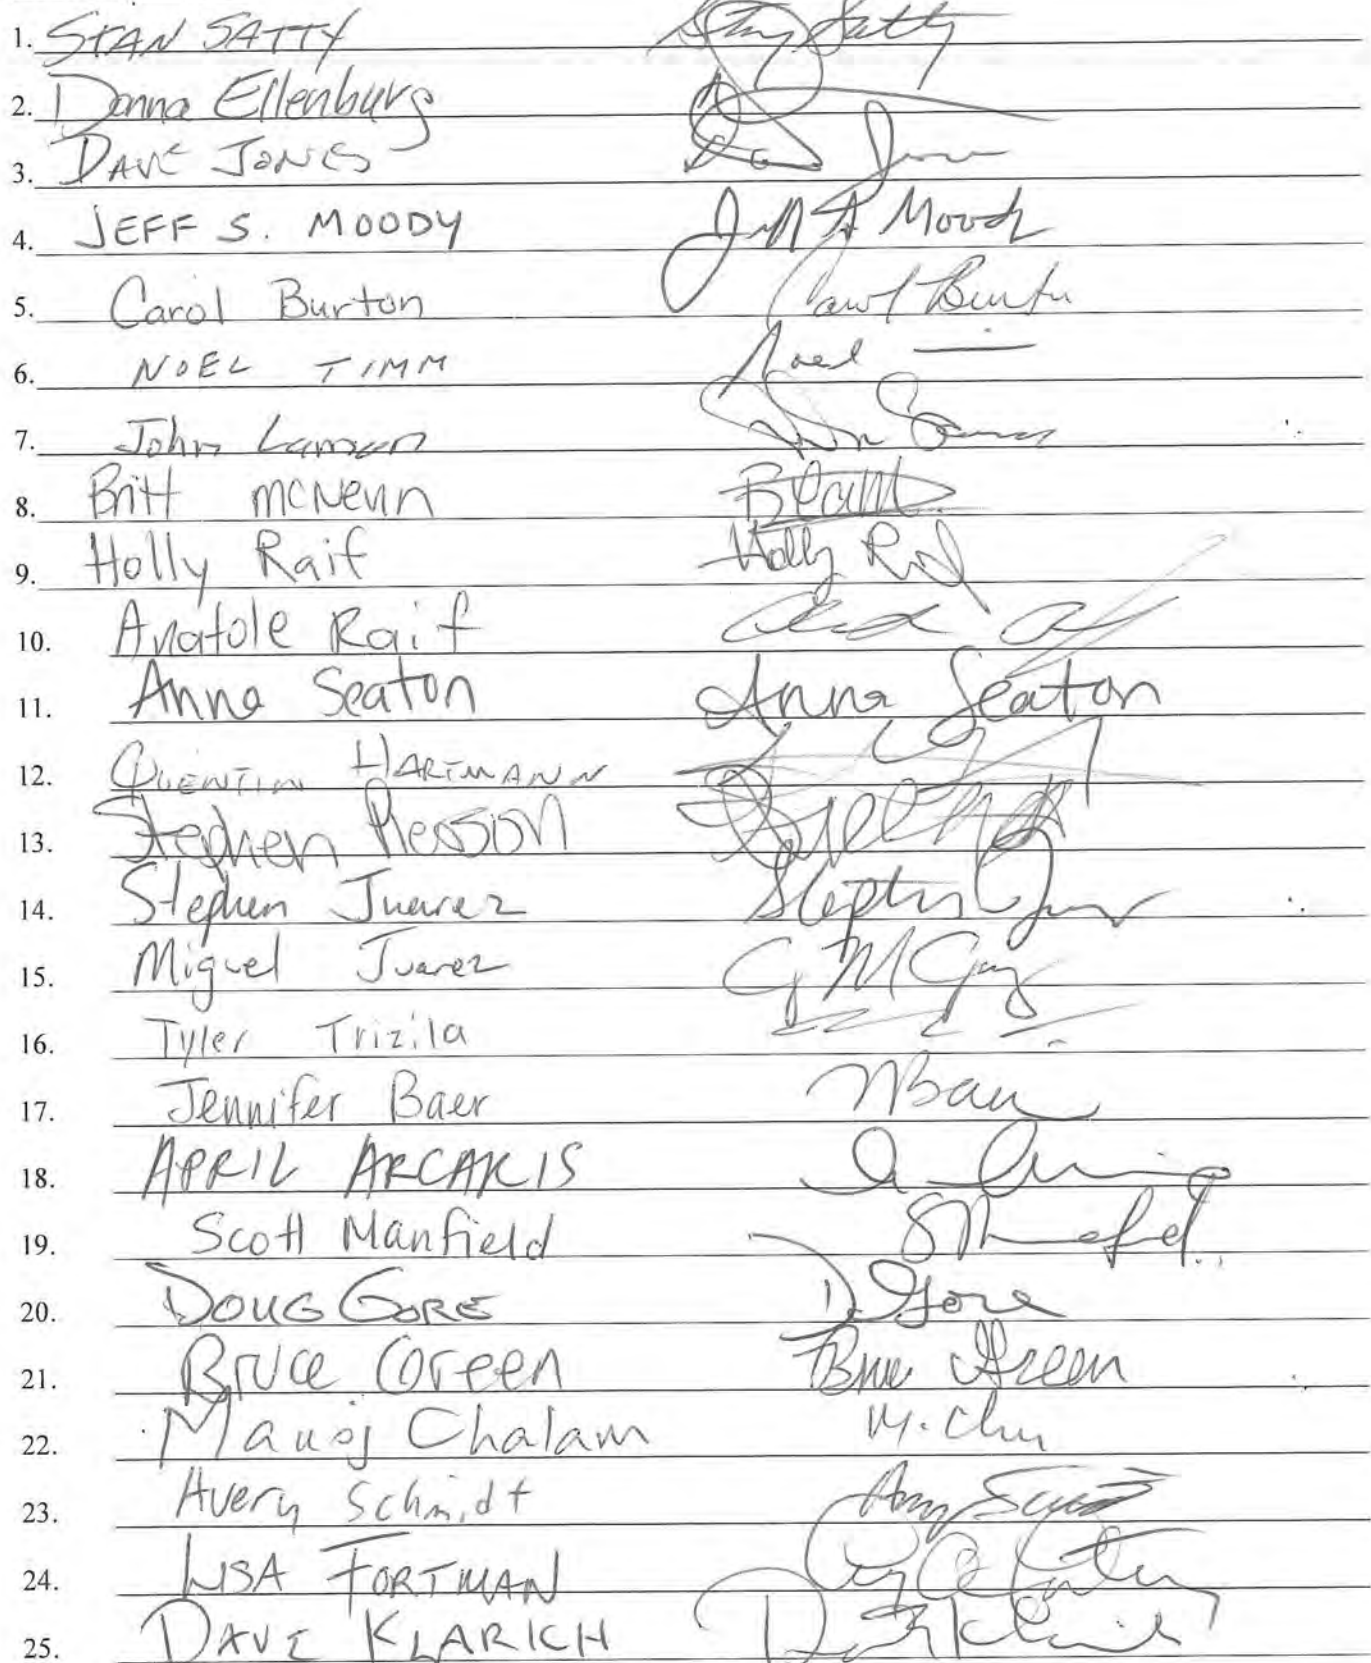 1. STAN SATTY Stan Satty
2. Donna Ellenburg
3. DAVE JONES Da Jones
4. JEFF S. MOODY Jeff S Moody
5. Carol Burton Carol Burton
6. NOEL TIMM Noel
7. John Lamson
8. Britt McNenn
9. Holly Raif Holly Raif
10. Anatole Raif
11. Anna Seaton Anna Seaton
12. QUENTIN HARTMANN
13. Stephen
14. Stephen Juarez Stephen Juarez
15. Miguel Juarez
16. Tyler Trizila
17. Jennifer Baer Baer
18. APRIL ARCAKIS
19. Scott Manfield SManfield
20. DOUG GORE D. Gore
21. Bruce Green Bruce Green
22. Manoj Chalam M. Chm
23. Avery Schmidt
24. LISA FORTMAN
25. DAVE KLARICH